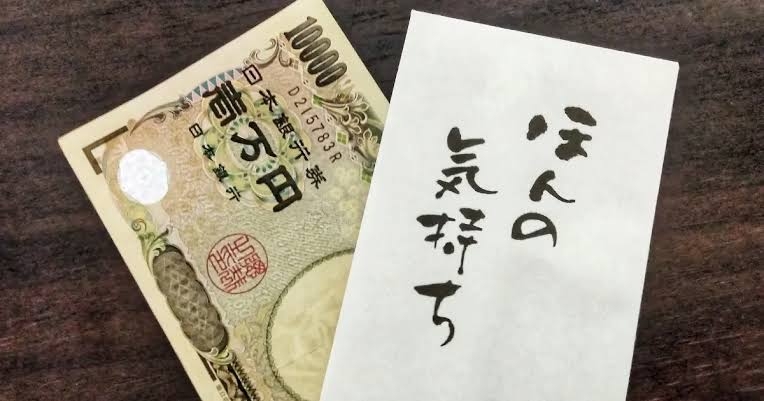 10000
D215783R
日本銀行券
壱万円
日本銀行
ほんの
気持ち